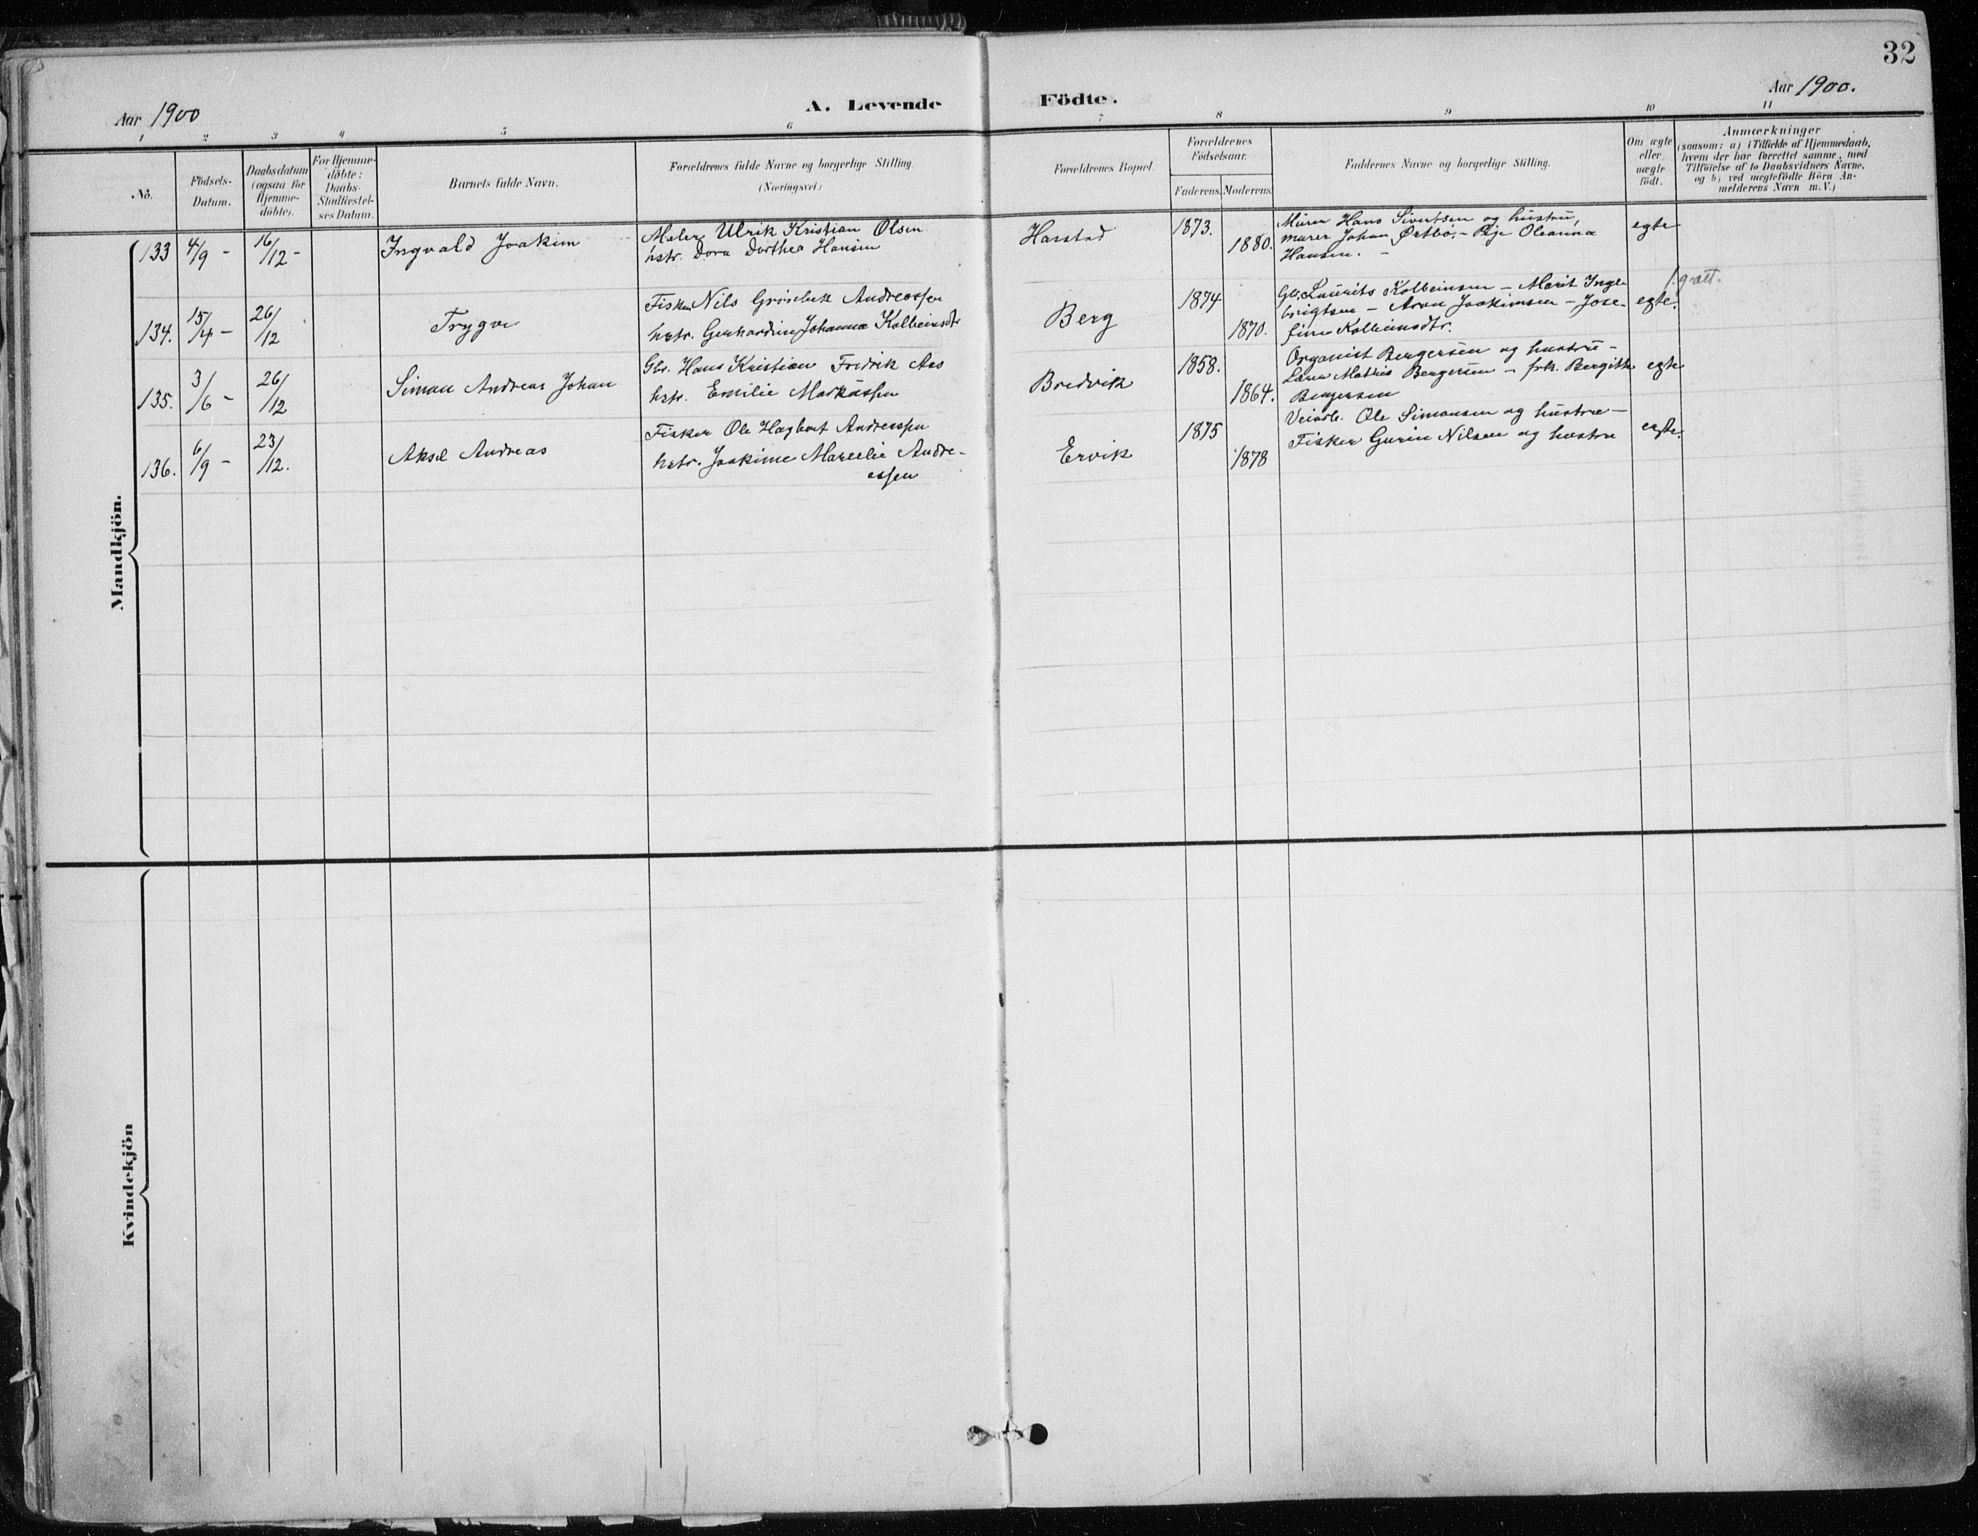 32
Aar 1900
A. Levende
Födte.
Aar 1900.
1 2 3 4 5 6 7 8 9 10 11
No.
Födsels-
Datum.
Daabsdatum
(ogsaa for
Hjemme-
döbte).
For Hjemme-
döbte:
Daabs-
Stadfæstel-
ses Datum.
Barnets fulde Navn.
Forældrenes fulde Navne og borgerlige Stilling.
(Næringsvei.)
Forældrenes Bopæl.
Forældrenes
Födselsaar.
Faderens. Moderens.
Faddernes Navne og borgerlige Stilling.
Om ægte
eller
uægte
födt.
Anmærkninger
(saasom: a) i Tilfælde af Hjemmedaab,
hvem der har forrettet samme, med
Tilföielse af to Daabsvidners Navne,
og b) ved uægtefödte Börn An-
melderens Navn m. V.)
Mandkjön.
133 4/9 - 16/12 - Ingvald Joakim
Maler Ulrik Kristian Olsen
hstr. Dora Dorthea Hansen
Harstad
1873.
1880.
Murer Hans Sivertsen og hustru,
murer Johan Ørtbø, - Pige Oleanna
Hansen. -
egte
134. 15/4 - 26/12 Trygve
Fisker Nils Andreassen
hstr. Gerhardine Johanna Kolbeinsdtr
Berg
1874
1870.
Gbr. Laurits Kolbeinsen - Marit Inge
brigtsen - Aron Joakimsen - Jose-
fine Kolbeinsdtr.
egte.
135. 3/6 - 26/12 Simon Andreas Johan
Gbr. Hans Kristian Fredrik Aas
hstr. Emilie Markussen
Bredvik
1858.
1864.
Organist Bergersen og hustru -
Mathis Bergersen - frk. Bergitte
Bergersen
egte
136. 6/9 - 23/12. Aksel Andreas
Fisker Ole Hagbart Andreassen
hstr. Joakime Marcelie Andre-
assen
Ervik
1875
1878
Veiarb. Ole Simonsen og hustru -
Fisker Nilsen og hustru
egte.
Kvindekjön